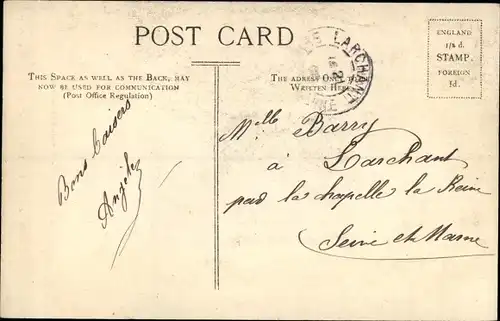 POST CARD
THIS SPACE AS WELL AS THE BACK, MAY
NOW BE USED FOR COMMUNICATION
(Post Office Regulation)
THE ADRESS ONLY TO BE
WRITTEN HERE
ENGLAND
1/2 d.
STAMP.
FOREIGN
1d.
LARCHANT
Bons baisers
Angèle
Melle Barry
à Larchant
par la chapelle la Reine
Seine et Marne